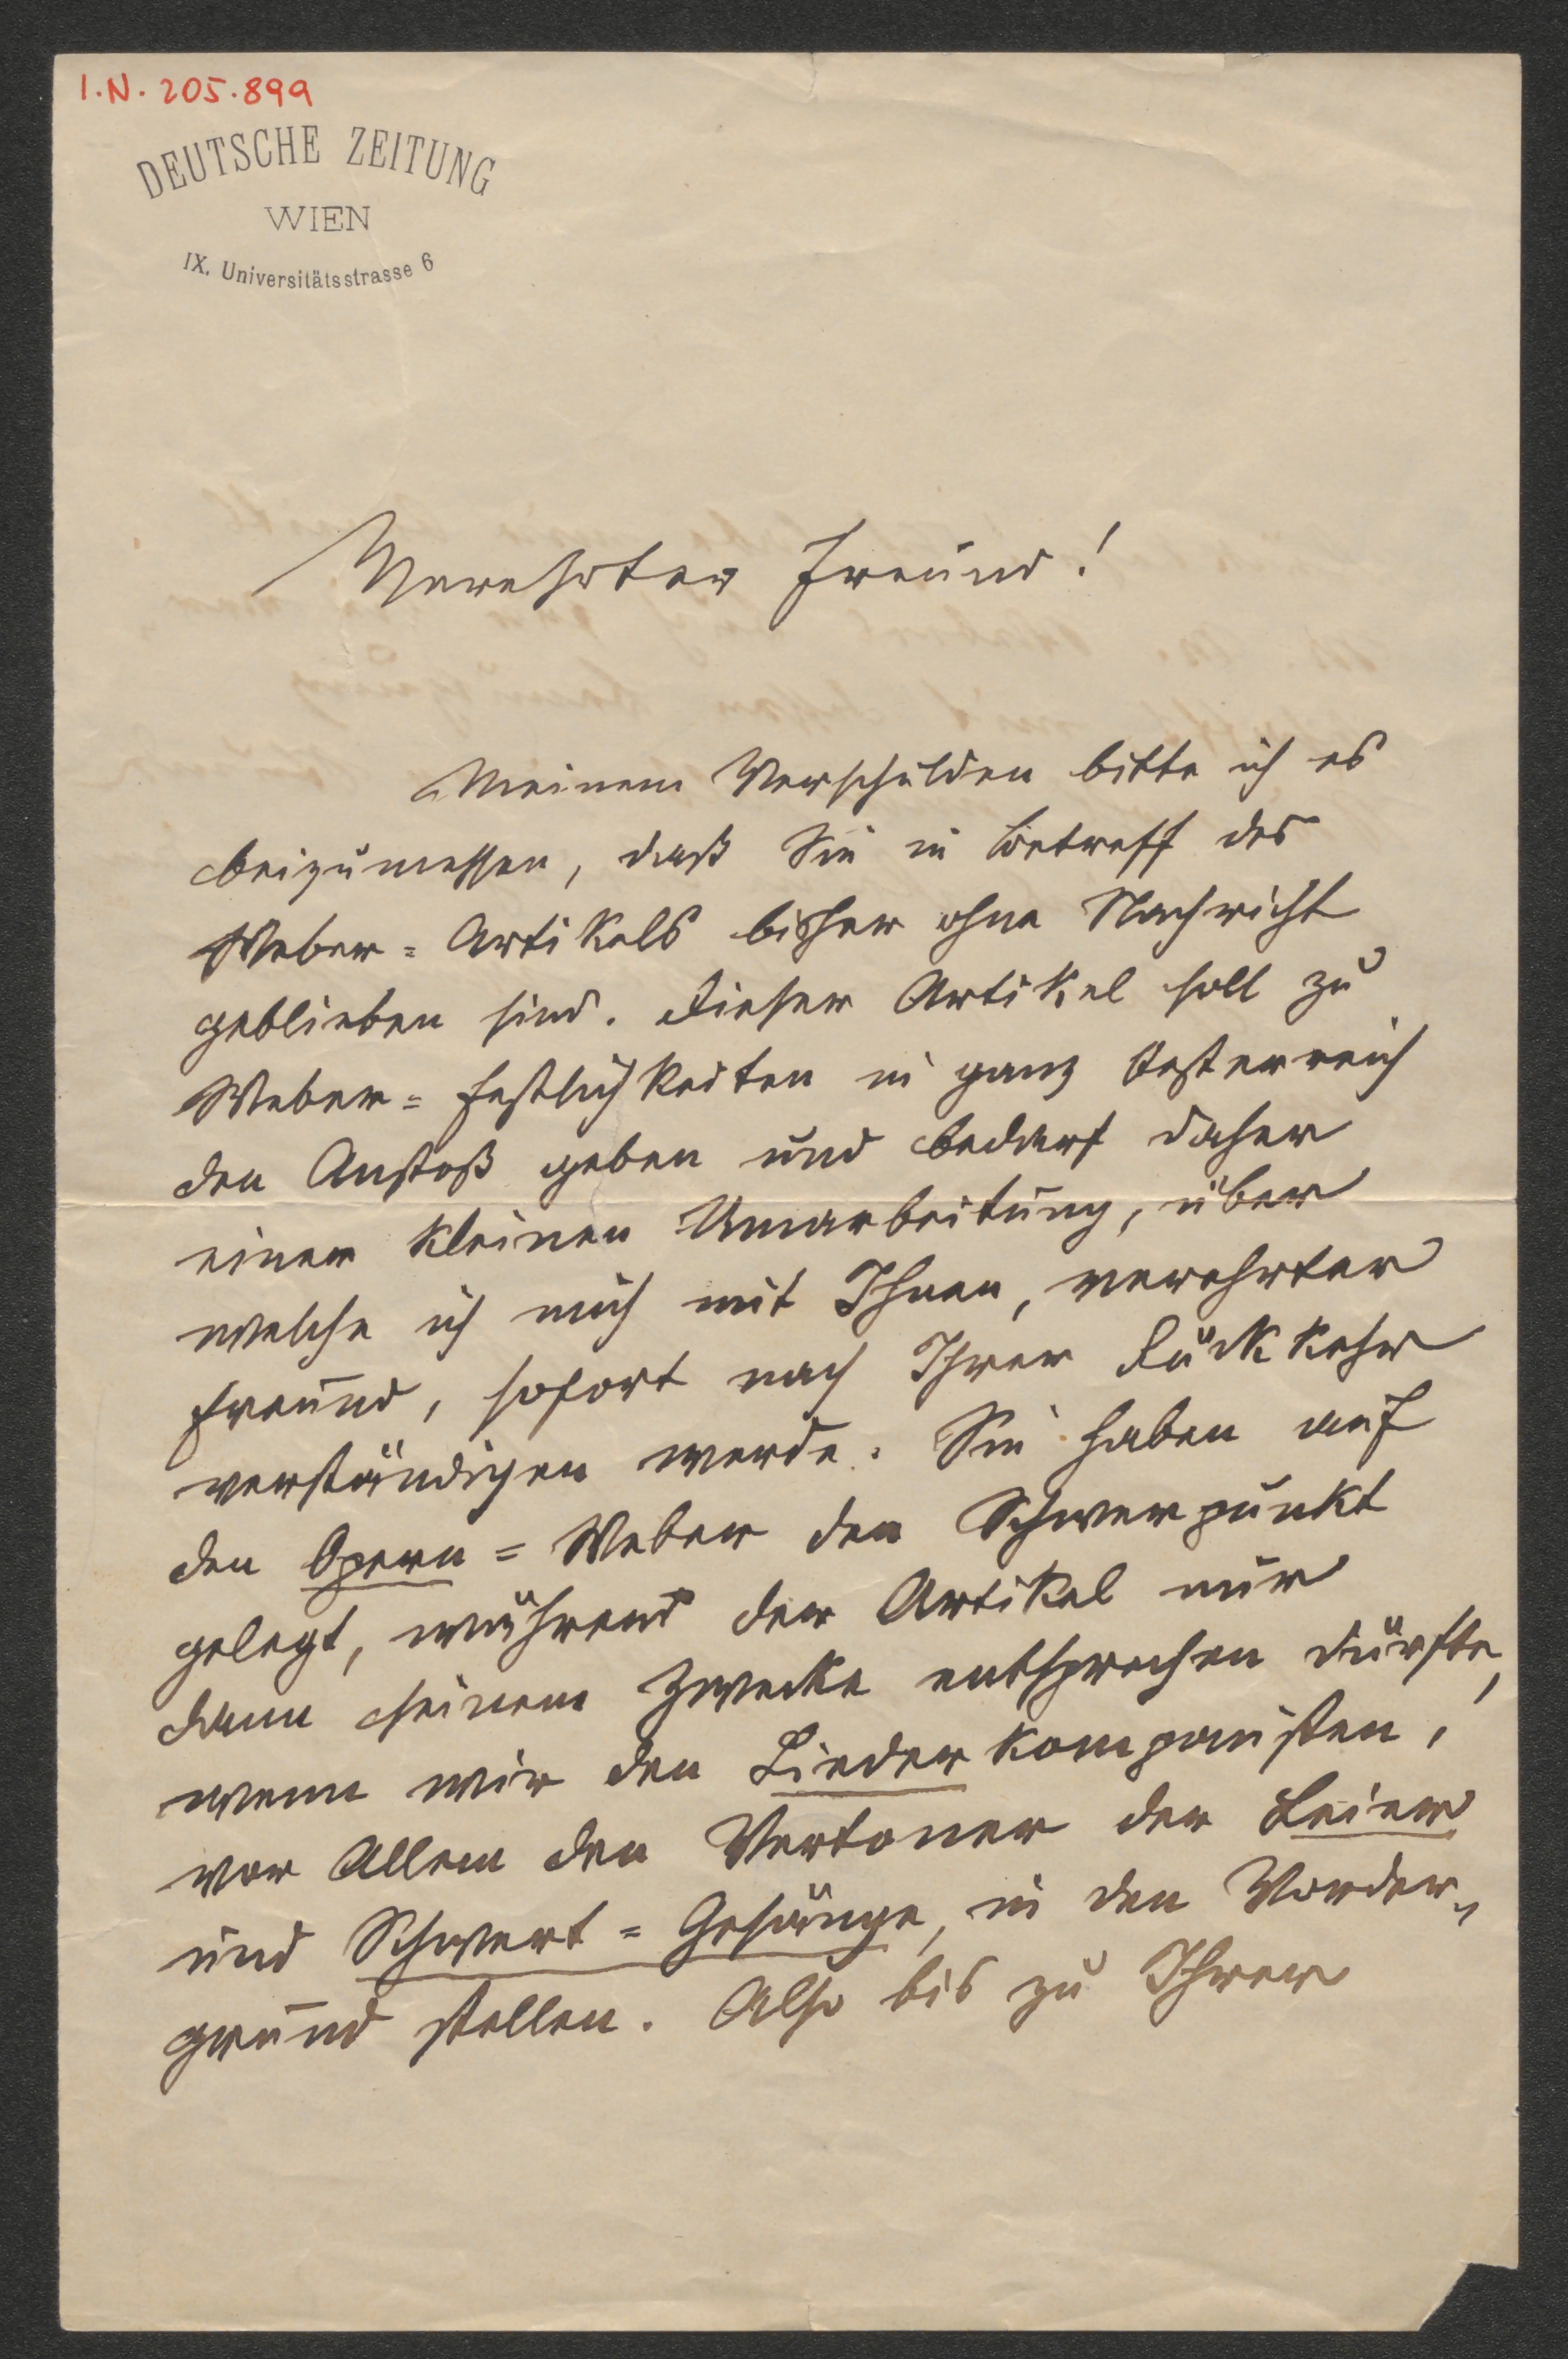 I.N. 205.899
DEUTSCHE ZEITUNG
WIEN
IX. Universitätsstrasse 6
Verehrter Freund!
Meinem Verschulden bitte ich es
beizumessen, daß Sie in Betreff des
Weber=Artikels bisher ohne Nachricht
geblieben sind. Dieser Artikel soll zu
Weber=Festlichkeiten in ganz Österreich
den Anstoß geben und bedarf daher
einer kleinen Umarbeitung, über
welche ich mich mit Ihnen, verehrter
Freund, sofort nach Ihrer Rückkehr
verständigen werde. Sie haben auf
den Opern=Weber den Schwerpunkt
gelegt, während der Artikel nur
dann seinem Zwecke entsprechen dürfte,
wenn wir den Liederkomponisten,
vor Allem den Vertoner der Leier
und Schwert=Gesänge, in den Vorder=
grund stellen. Also bis zu Ihrer